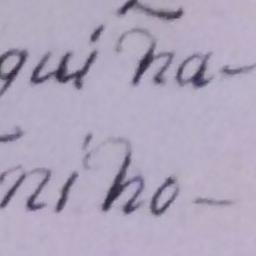 qui ña-
ñi ho-